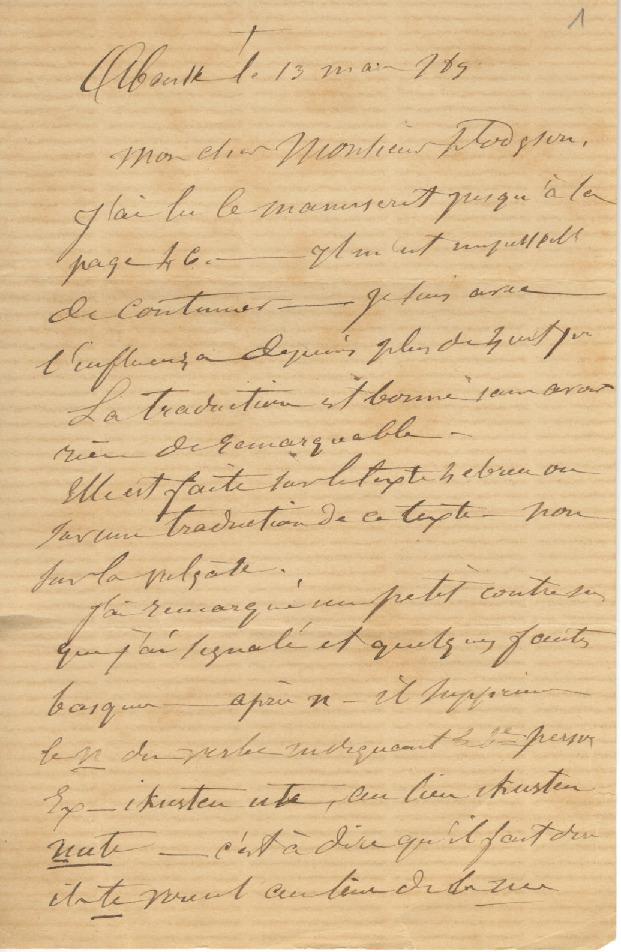 1
le 13 mai 789
Mon cher Monsieur Dodgson,
J'ai lu le manuscrit jusqu'à la
page 46. — Il m'est impossible
de continuer — je suis avec
l'influenza depuis plus de huit jrs
La traduction est bonne sans avoir
rien de remarquable —
Elle est faite sur le texte hebreu ou
sur une traduction de ce texte — non
sur la vulgate.
J'ai remarqué un petit contre sens
que j'ai signalé et quelques fautes
basques — après n — il supprime
le n du verbe indiquant personne
Ex — ikusten ute, au lieu ikusten
nute — c'est à dire qu'il fait dire
ils te voient au lieu de